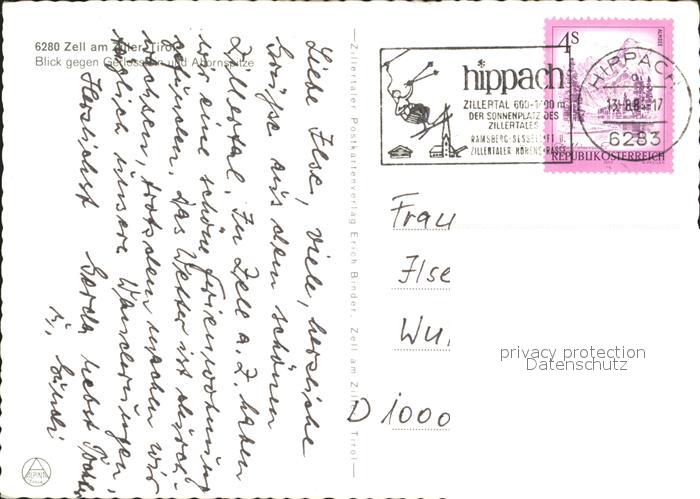 6280 Zell am Ziller, Tirol
Blick gegen Gerlosstein und Ahornspitze
Liebe Ilse, viele, herzliche
Grüße aus dem schönen
Zillertal. In Zell a. Z. haben
wir eine schöne Ferienwohnung
gefunden. Das Wetter ist durch-
wachsen, trotzdem machen wir
täglich unsere Wanderungen.
Herzlichst Gerda nebst
u.
Zillertaler Postkartenverlag Erich Binder, Zell am Ziller Tirol
ALPINA
hippach
ZILLERTAL 600-1700 m
DER SONNENPLATZ DES
ZILLERTALES
RAMSBERG-SESSELLIFT U.
ZILLERTALER HÖHENSTRASSE
4S
ALMSEE
REPUBLIK ÖSTERREICH
HIPPACH
6283
Frau
Ilse
Wu
D 1000
privacy protection
Datenschutz